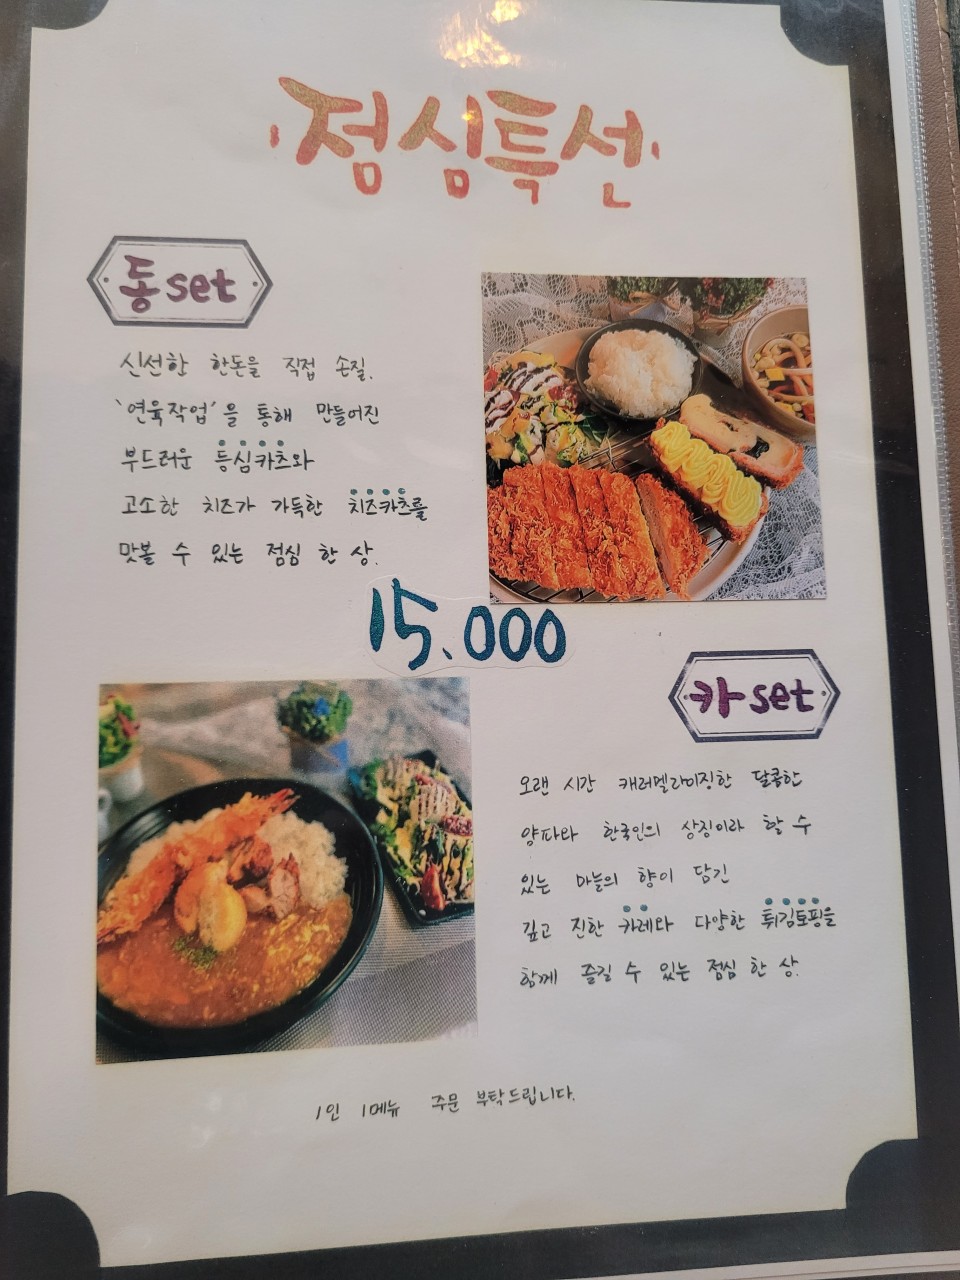 점심특선
동set
신선한 한돈을 직접 손질.
'연육작업'을 통해 만들어진
부드러운 등심카츠와
고소한 치즈가 가득한 치즈카츠를
맛볼 수 있는 점심 한 상.
15.000
카set
오랜 시간 캐러멜라이징한 달콤한
양파와 한국인의 상징이라 할 수
있는 마늘의 향이 담긴
깊고 진한 카레와 다양한 튀김토핑을
함께 즐길 수 있는 점심 한 상.
1인 1메뉴 주문 부탁드립니다.